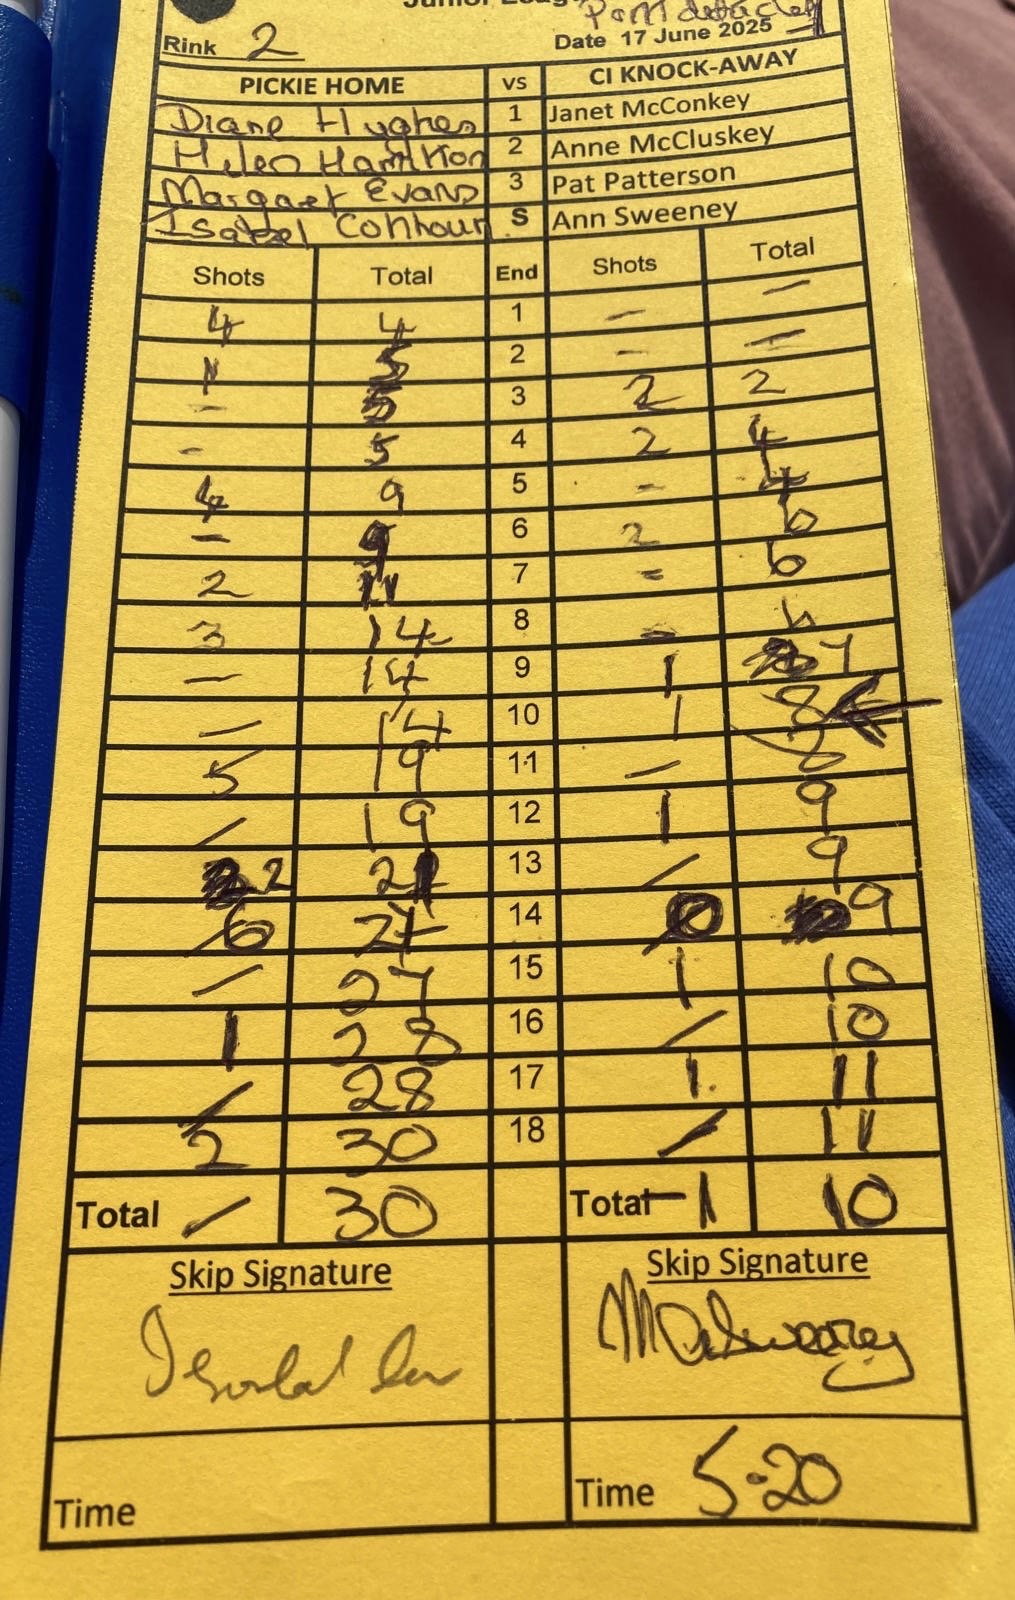 Rink 2
Date 17 June 2025
PICKIE HOME vs CI KNOCK-AWAY
Diane Hughes 1 Janet McConkey
Helen Hamilton 2 Anne McCluskey
Margaret Evans 3 Pat Patterson
Isabel S Ann Sweeney
Shots Total End Shots Total
4 4 1 - -
1 5 2 - -
- 5 3 2 2
- 5 4 2 4
4 9 5 - 4
- 9 6 2 6
2 11 7 - 6
3 14 8 - 6
- 14 9 1 7
- 14 10 1 8
5 19 11 - 8
/ 19 12 1 9
2 21 13 / 9
6 27 14 0 9
/ 27 15 1 10
1 28 16 / 10
/ 28 17 1. 11
2 30 18 / 11
Total / 30 Total -1 10
Skip Signature Skip Signature
Time Time 5.20